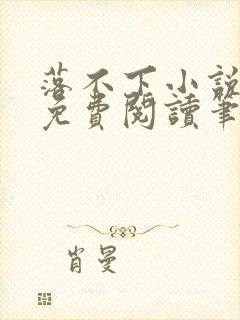 落不下小說
免費閱讀筆
肖曼